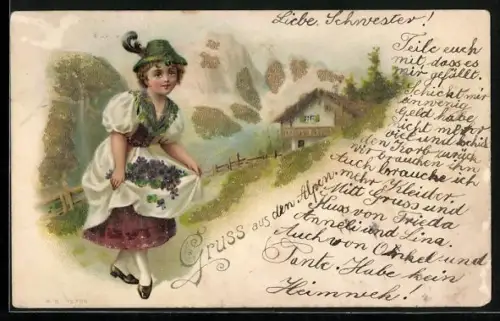 Liebe Schwester!
Teile euch
mit, dass es
mir gefällt.
Schickt mir
ein wenig
Geld habe
nicht mehr
viel und schickt
den Korb zurück
wir brauchen ihn
Auch brauche ich
mehr Kleider.
Mitt Gruss und
Kuss von Frieda
Anneli und Lina.
Auch von Onkel und
Tante. Habe kein
Heimweh!
Gruss aus den Alpen